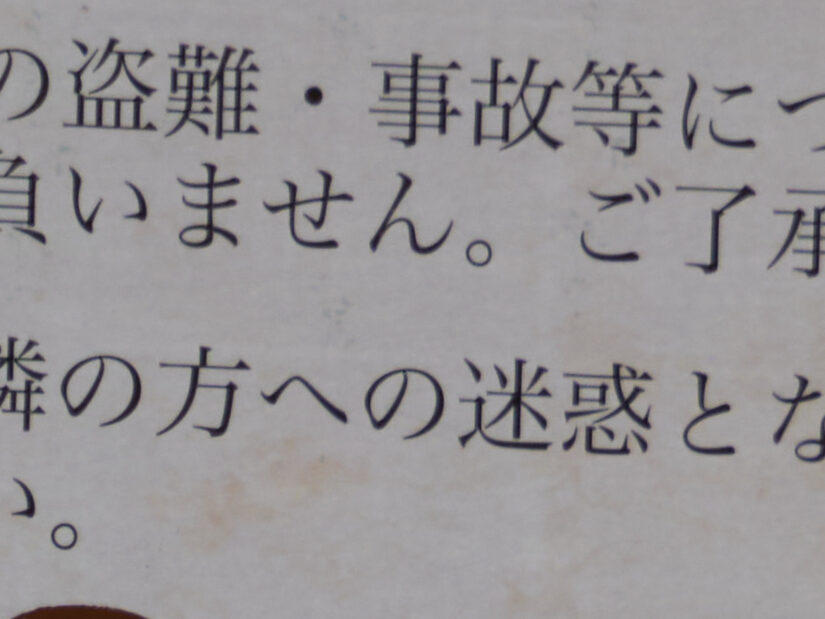 の盗難・事故等につ
負いません。ご了承
隣の方への迷惑とな
い。